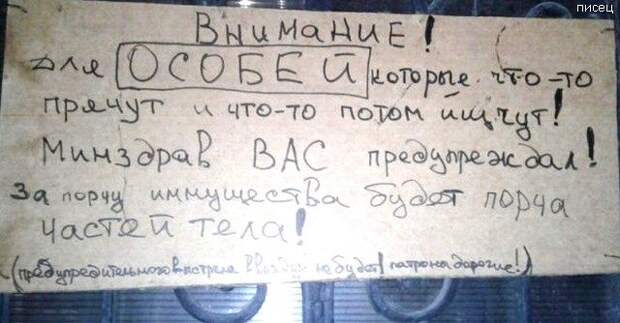 писец
Внимание!
для ОСОБЕЙ которые что-то
прячут и что-то потом ищут!
Минздрав ВАС предупреждал!
За порчу иммущества будет порча
частей тела!
(предупредительного выстрела в воздух не будет! патроны дорогие!)